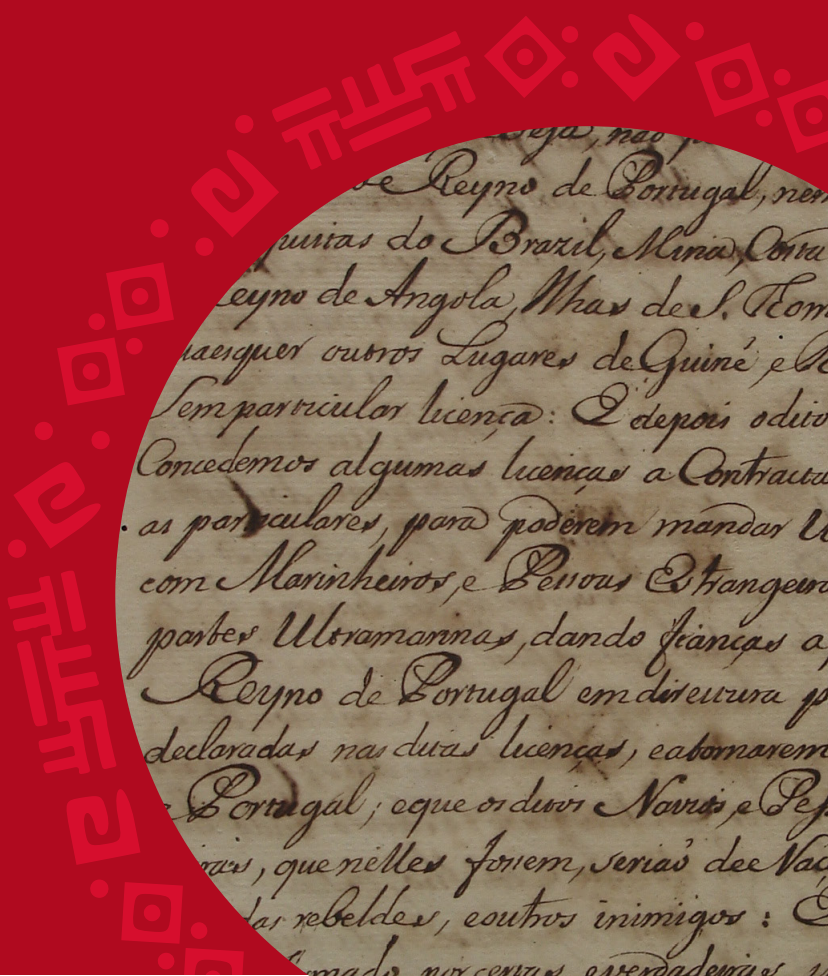 seja, não
Reyno de Portugal, nem
quistas do Brazil, Mina, Costa
Reyno de Angola, Ilhas de S. Thom
uaesquer outros Lugares de Guiné, e
Sem particular licença: E depois o dito
Concedemos algumas licenças a Contracta
as particulares, para poderem mandar
com Marinheiros, e Pessoas Estrangeira
partes Ultramarinas, dando fianças a
Reyno de Portugal em direitura p
declaradas nas ditas licenças, e a tornarem
e Portugal; e que os ditos Navios, e Pes
iras, que nelles fossem, seriaõ de Naç
das rebeldes, e outros inimigos: E
por certas, e verdadeiras